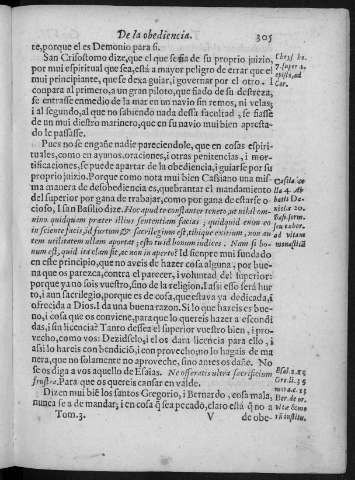 De la obediencia. 305
te, porque el es Demonio para si.
San Crisostomo dize, que el que se fia de su proprio juizio,
por mui espiritual que sea, está a mayor peligro de errar que el
mui principiante, que se dexa guiar, i governar por el otro. I
conpara al primero, a un gran piloto, que fiado de su destreza,
se entrasse en medio de la mar en un navio sin remos, ni velas;
i al segundo, al que no sabiendo nada dessa facultad, se fiasse
de un mui diestro marinero, que en su navio mui bien aprestado
le passasse.
Pues no se engañe nadie pareciendole, que en cosas espirituales,
como en ayunos, oraciones, i otras penitencias, i mortificaciones,
se puede apartar de la obediencia, i guiarse por su
proprio juizio. Porque como nota mui bien Cassiano una misma
manera de desobediencia es, quebrantar el mandamiento
del superior por gana de trabajar, como por gana de estarse ocioso,
I san Basilio dize. Hoc apud te constanter teneto, ut nihil omnino
quidquam præter illius sententiam facias; quidquid enim eo
insciente facis, id furtum & sacrilegium est, tibique exitium, non autem
utilitatem ullam aportat; esto tu id bonum iudices. Nam si bonum
est, quid ita clam fit, ac non in aperto? Id sienpre mui fundado
en este principio, que no aveis de hazer cosa alguna, por buena
que os parezca, contra el parecer, i voluntad del superior:
porque ya no sois vuestro, sino de la religion. I assi esse será hurto,
i aun sacrilegio, porque es de cosa, que estava ya dedicada, i
ofrecida a Dios. I da una buena razon. Si lo que hazeis es bueno,
i cosa que os conviene, para que lo quereis hazer a escondidas,
i sin licencia? Tanto dessea el superior vuestro bien, i provecho,
como vos: Dezidselo, i el os dara licencia para ello, i
assi lo hareis con bendicio, i con provecho; no lo hagais de manera,
que no solamente no aproveche, sino antes os dañe. No
se os diga a vos aquello de Esaias. Ne offeratis ultra sacrificium
frustra. Para que os quereis cansar en valde.
Dizen mui biē los santos Gregorio, i Bernardo, cosa mala,
nunca se a de mandar; i en cosa q̄ sea pecado, claro está q̄ no a
Tom. 3. V de obe-